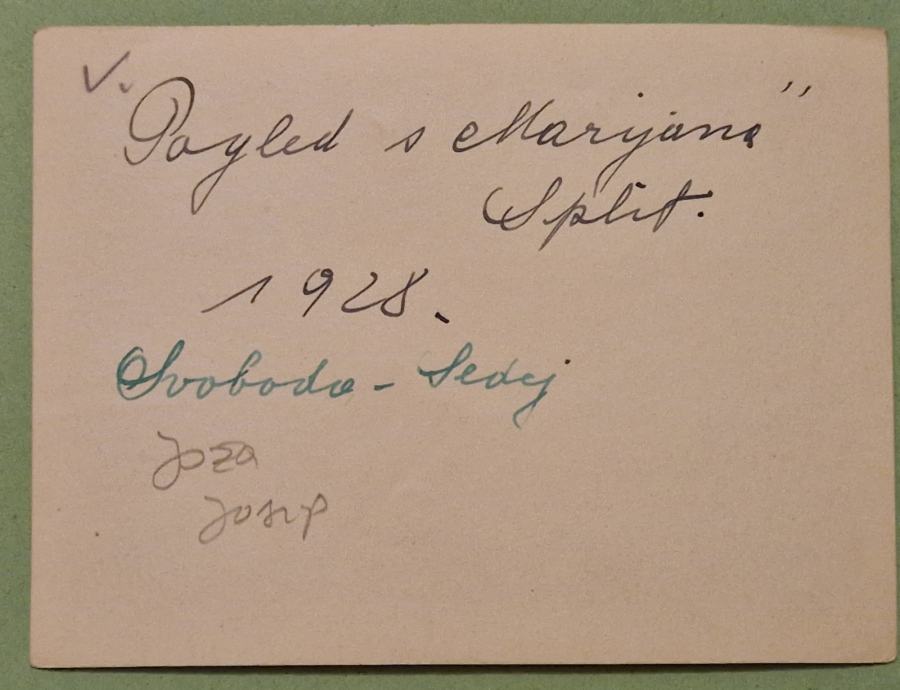 V.
Pogled s Marijana"
Split.
1928.
Svoboda - Sedej
Joza
Josip